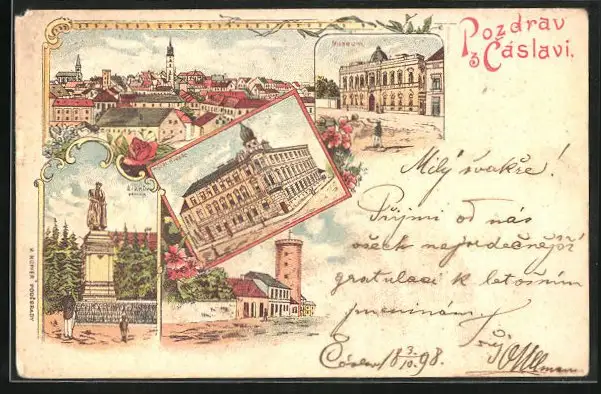 Pozdrav
z Čáslavi.
Museum.
Žižkův
pomník
Milý švakře!
Přijmi od nás
všech nejsrdečnější
gratulaci k letošním
jmeninám!
Tvůj
Čáslav 18 3/10 98.
K. KUPFER PODĚBRADY